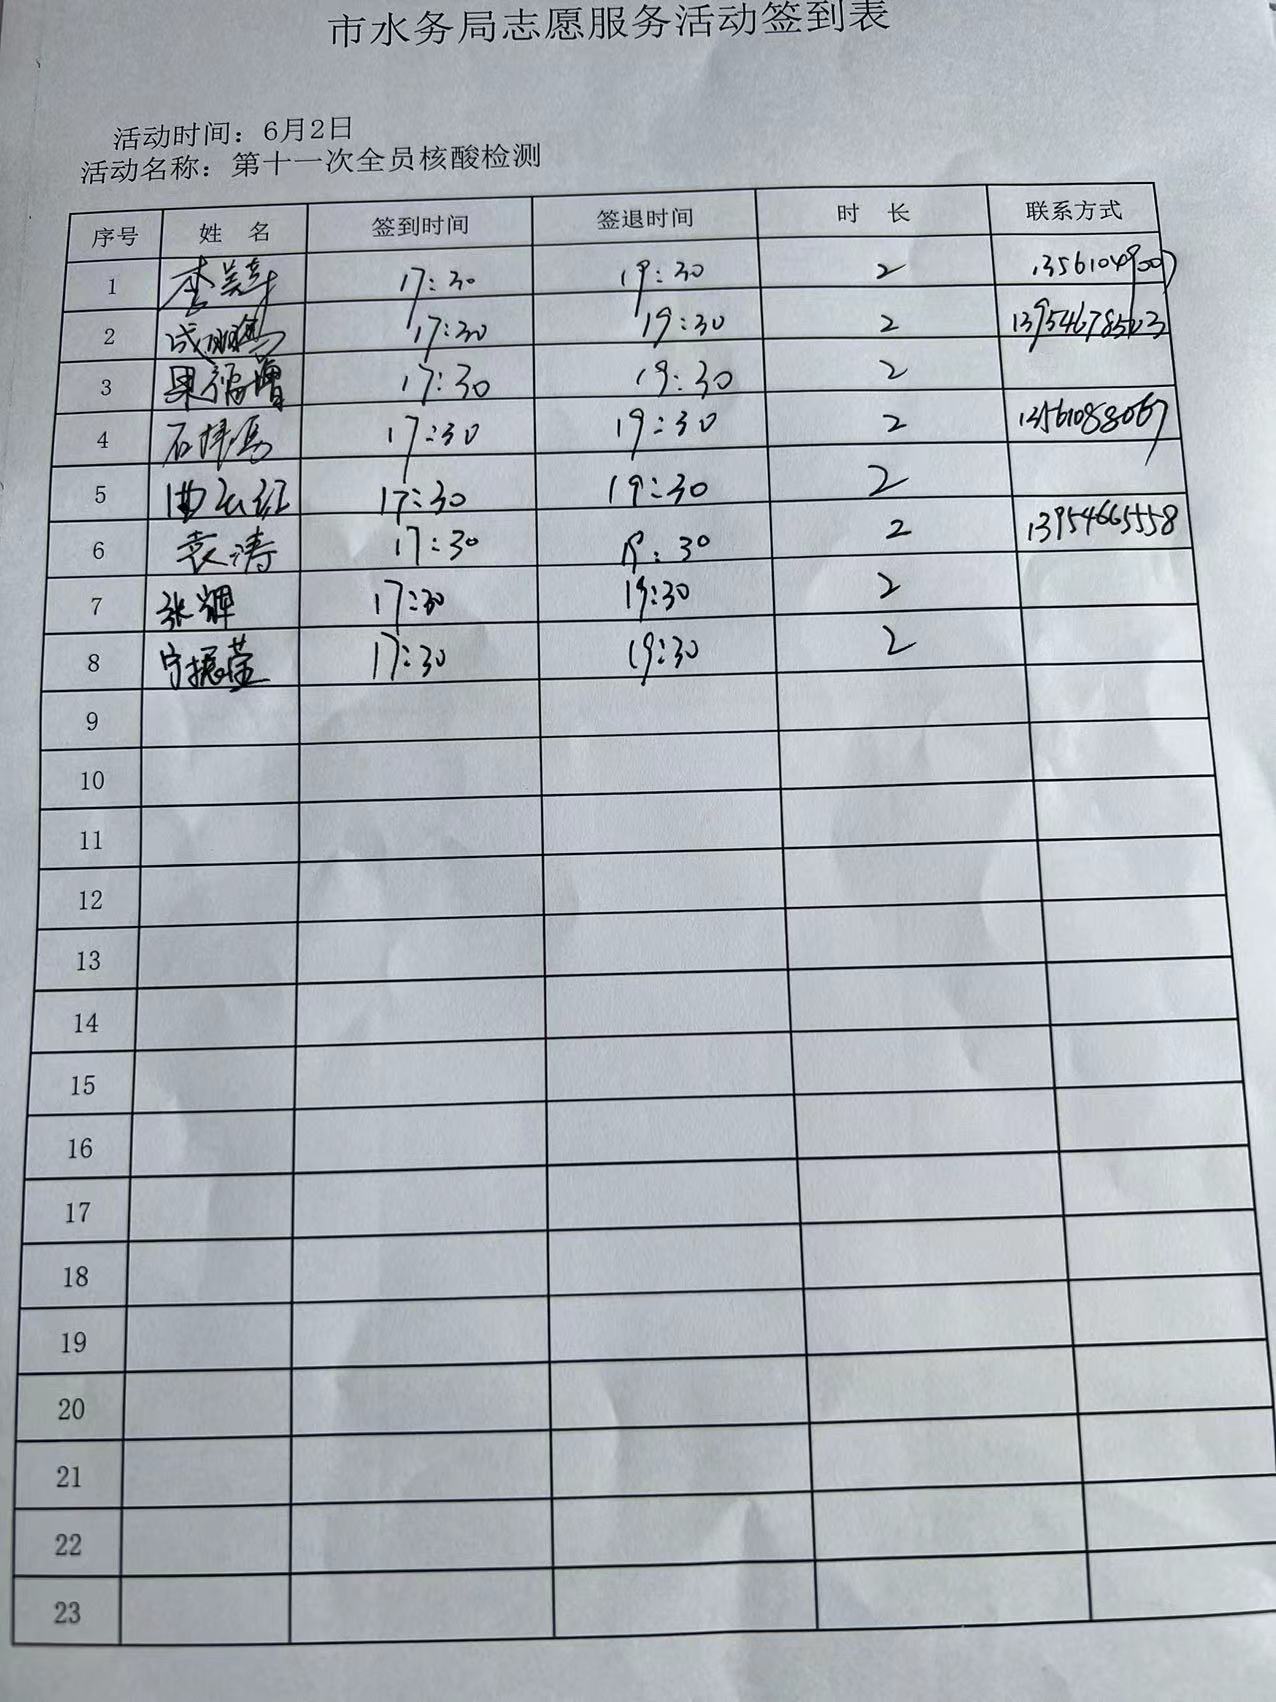 市水务局志愿服务活动签到表
活动时间：6月2日
活动名称：第十一次全员核酸检测
序号 姓 名 签到时间 签退时间 时 长 联系方式
1 李 17:30 19:30 2
2 17:30 19:30 2
3 17:30 19:30 2
4 石 17:30 19:30 2 13561088067
5 曲 17:30 19:30 2
6 袁涛 17:30 19:30 2 13954665558
7 张辉 17:30 19:30 2
8 宁振莹 17:30 19:30 2
9
10
11
12
13
14
15
16
17
18
19
20
21
22
23